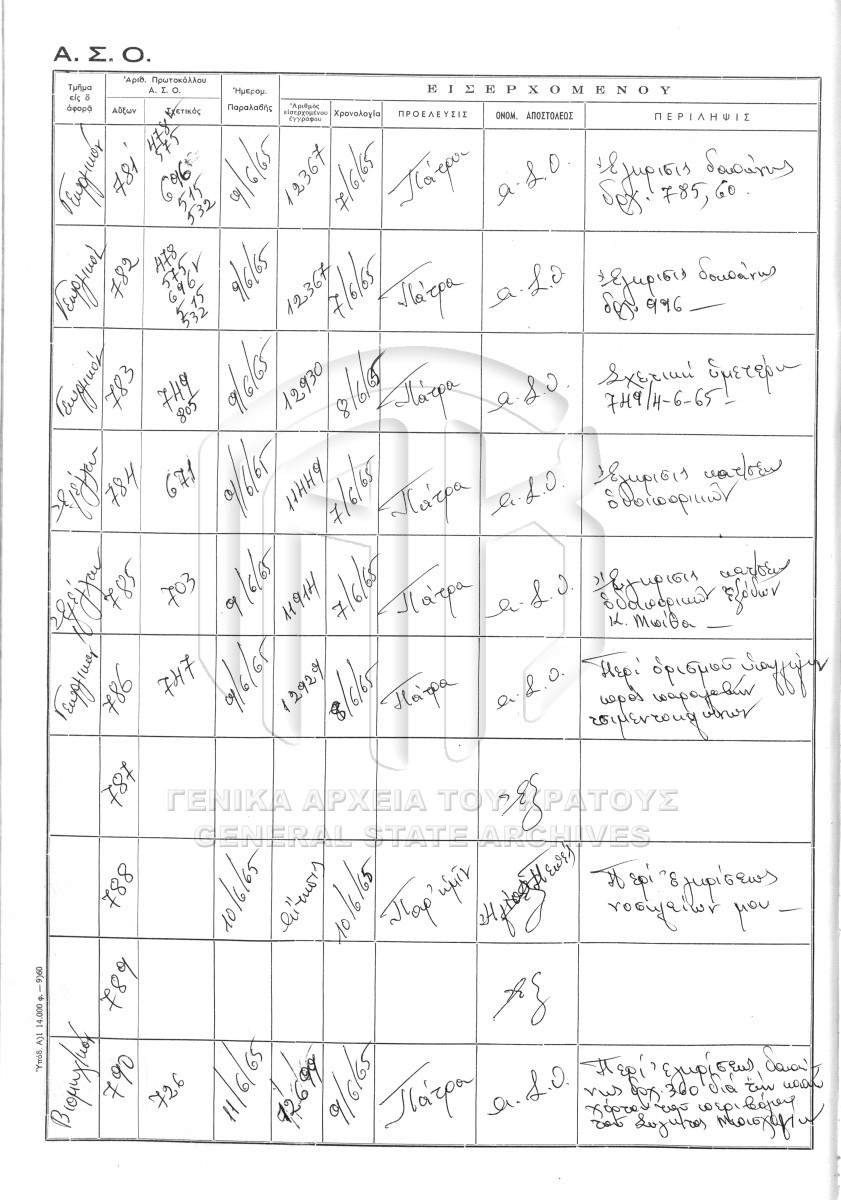 Α. Σ. Ο.
Τμῆμα εἰς ὃ ἀφορᾷ
Ἀριθ. Πρωτοκόλλου Α. Σ. Ο.
Αὔξων
Σχετικός
Ἡμερομ. Παραλαβῆς
ΕΙΣΕΡΧΟΜΕΝΟΥ
Ἀριθμὸς εἰσερχομένου ἐγγράφου
Χρονολογία
ΠΡΟΕΛΕΥΣΙΣ
ΟΝΟΜ. ΑΠΟΣΤΟΛΕΩΣ
ΠΕΡΙΛΗΨΙΣ
Γεωργικόν 781 478 575 696 515 532 9/6/65 12367 7/6/65 Πάτρα Α.Σ.Ο. Ἔγκρισις δαπάνης
δρχ. 785,60.
Γεωργικόν 782 478 575 696 515 532 9/6/65 12367 7/6/65 Πάτρα Α.Σ.Ο. Ἔγκρισις δαπάνης
δρχ. 996 —
Γεωργικόν 783 749 805 9/6/65 12930 8/6/65 Πάτρα Α.Σ.Ο. Σχετική ὑμετέρα
749/4-6-65 —
784 671 9/6/65 11449 7/6/65 Πάτρα Α.Σ.Ο. Ἔγκρισις
ὁδοιπορικῶν
785 703 9/6/65 11914 7/6/65 Πάτρα Α.Σ.Ο. Ἔγκρισις
ὁδοιπορικῶν ἐξόδων
Κ. —
Γεωργικόν 786 747 9/6/65 12929 8/6/65 Πάτρα Α.Σ.Ο. Περί ὁρισμοῦ
πρός παραλαβήν
787 Ἐξ
788 10/6/65 αἴτησις 10/6/65 Παρ' ἡμῖν Περί ἐγκρίσεως
νοσηλείων μου —
789 Ἐξ
Βιομηχ/κόν 790 726 11/6/65 9/6/65 Πάτρα Α.Σ.Ο. Περί ἐγκρίσεως δαπά
νης δρχ. 300 διά τήν
χόρτων τοῦ περιβόλου
τοῦ
ΓΕΝΙΚΑ ΑΡΧΕΙΑ ΤΟΥ ΚΡΑΤΟΥΣ
GENERAL STATE ARCHIVES
Ὑπόδ. Α)1 14.000 φ. — 9)60